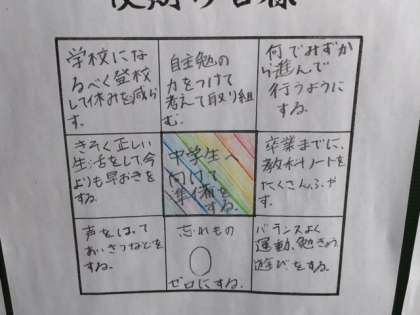 後期の目標
学校にな
るべく登校
して休みを減ら
す。
自主勉の
力をつけて
考えて取り組
む。
何でもみずか
ら進んで
行うように
する。
きそく正しい
生活をして、今
よりも早おきを
する。
中学生へ
向けて
準備を
する。
卒業までに、
教科ノートを
たくさんふやす。
声をはって
あいさつなどを
する。
忘れもの
0
ゼロにする。
バランスよく
運動、勉きょう、
遊びをする。